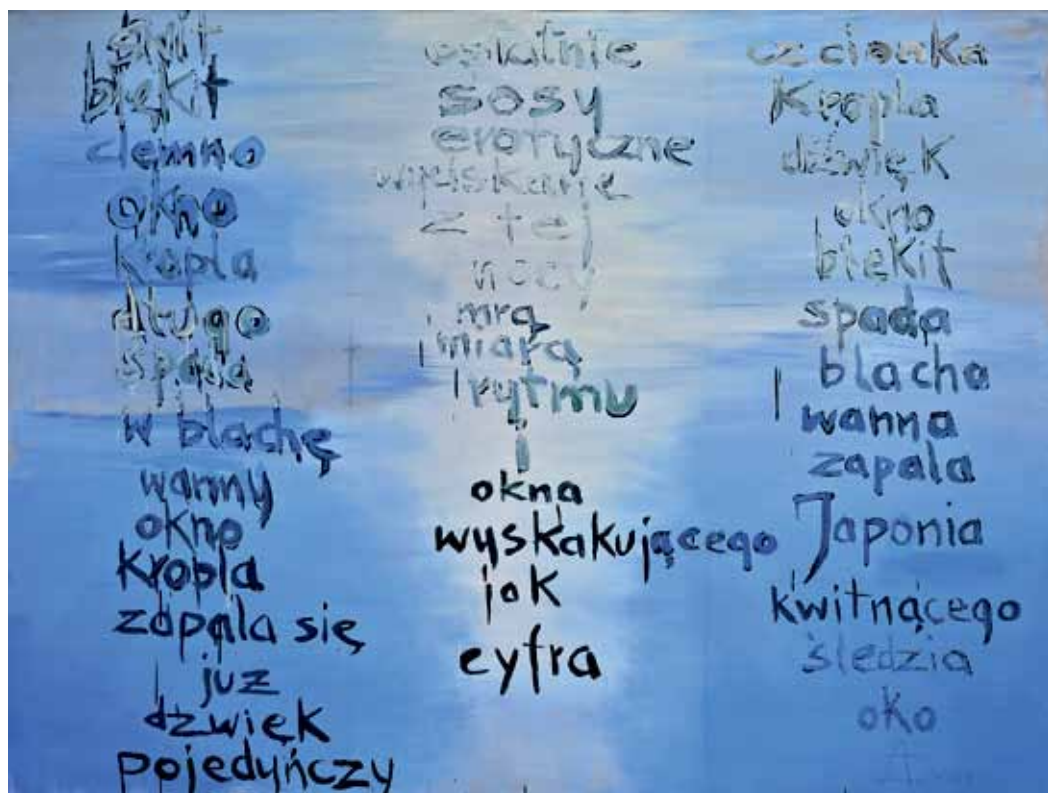 świt
błękit
ciemno
okno
kropla
długo
spada
w blachę
wanny
okno
kropla
zapala się
już
dźwięk
pojedyńczy
ostatnie
sosy
erotyczne
wypiskane
z tej
nocy
mrą
miarą
rytmu
i
okna
wyskakującego
jak
cyfra
czcionka
Kropla
dźwięk
okno
błękit
spada
blacha
wanna
zapala
Japonia
kwitnącego
śledzia
oko